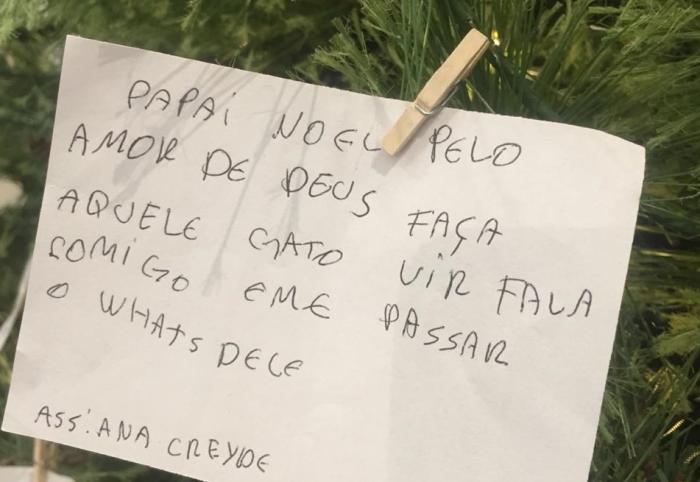 PAPAi NOEL PELO
AMOR DE DEUS FAÇA
AQUELE GATO VIR FALA
COMIGO EME PASSAR
O WHATS DELE
ASS: ANA CREYDE